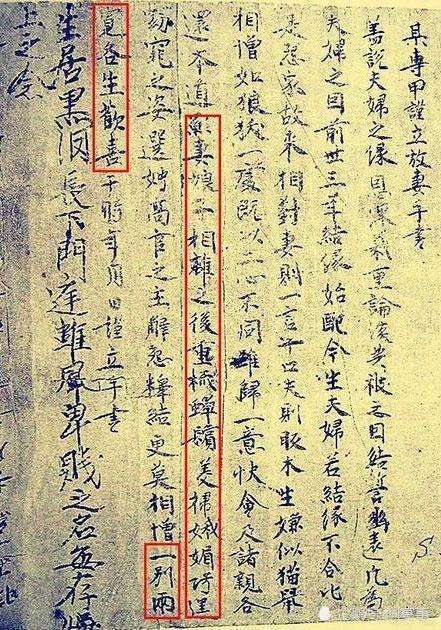 某專甲謹立放妻手書
蓋說夫婦之緣恩深義重論談共被之因結誓幽遠凡為
夫婦之因前世三年結緣始配今生夫婦若結緣不合比
是怨家故來相對妻則一言十口夫則反木生嫌似猫鼠
相憎如狼一處既以二心不同難歸一意快會及諸親各
還本道願妻娘子相離之後重梳蟬鬢美掃娥媚巧逞
窈窕之姿選娉高官之主解怨釋結更莫相憎一別兩
寬各生歡喜于時年月日謹立手書
生居黑長下門庭雖卑賤之名無存
上之
S.